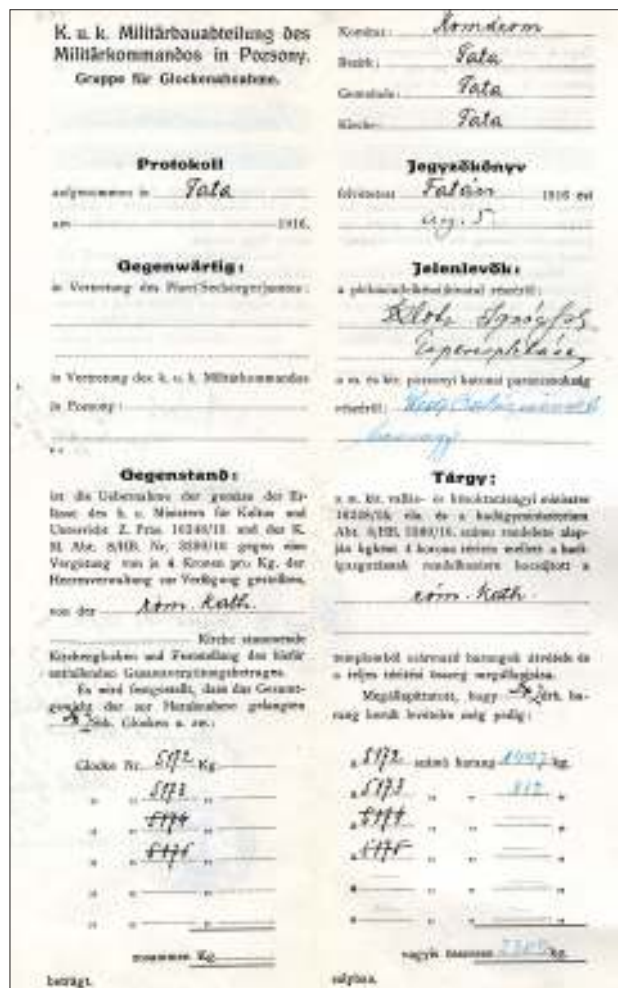 K. u. k. Militärbauabteilung des
Militärkommandos in Pozsony.
Gruppe für Glockenabnahme.
Protokoll
aufgenommen in Tata
am 1916.
Gegenwärtig:
in Vertretung des Pfarr(Seelsorger)amtes:
in Vertretung des k. u. k. Militärkommandos
in Pozsony:
Gegenstand:
ist die Uebernahme der gemäss der Er-
lässe des k. u. Ministers für Kultus und
Unterricht Z. Präs. und des K.
M. Abt. 8/HB. Nr. gegen eine
Vergütung von je 4 Kronen pro Kg. der
Heeresverwaltung zur Verfügung gestellten,
von der róm. kath.
Kirche stammende
Kirchenglocken und Feststellung des hiefür
entfallenden Gesamtvergütungsbetrages.
Es wird festgestellt, dass das Gesamt-
gewicht der zur Herabnahme gelangten
Stk. Glocken u. zw.:
Glocke Nr. 5172 Kg.
" " 5173 "
" " 5174 "
" " 5175 "
" " "
" " "
zusammen Kg.
beträgt.
Komitat:
Bezirk: Tata
Gemeinde: Tata
Kirche: Tata
Jegyzőkönyv
felvétetett Tatán 1916 évi
aug. 5
Jelenlevők:
a plébánia(lelkészi)hivatal részéről:
a cs. és kir. pozsonyi katonai parancsnokság
részéről:
Tárgy:
a m. kir. vallás- és közoktatásügyi miniszter
eln. és a hadügyminisztérium
Abt. 8/HB. számú rendelete alap-
ján kgként 4 korona térítés mellett a hadi-
igazgatásnak rendelkezésére bocsájtott a
róm. kath.
templomból származó harangok átvétele és
a teljes térítési összeg megállapítása.
Megállapíttatott, hogy drb. ha-
rang került levételre még pedig:
a 5172 számú harang kg.
" 5173 " " "
" 5174 " " "
" 5175 " " "
" " " "
" " " "
vagyis összesen kg.
súlyban.